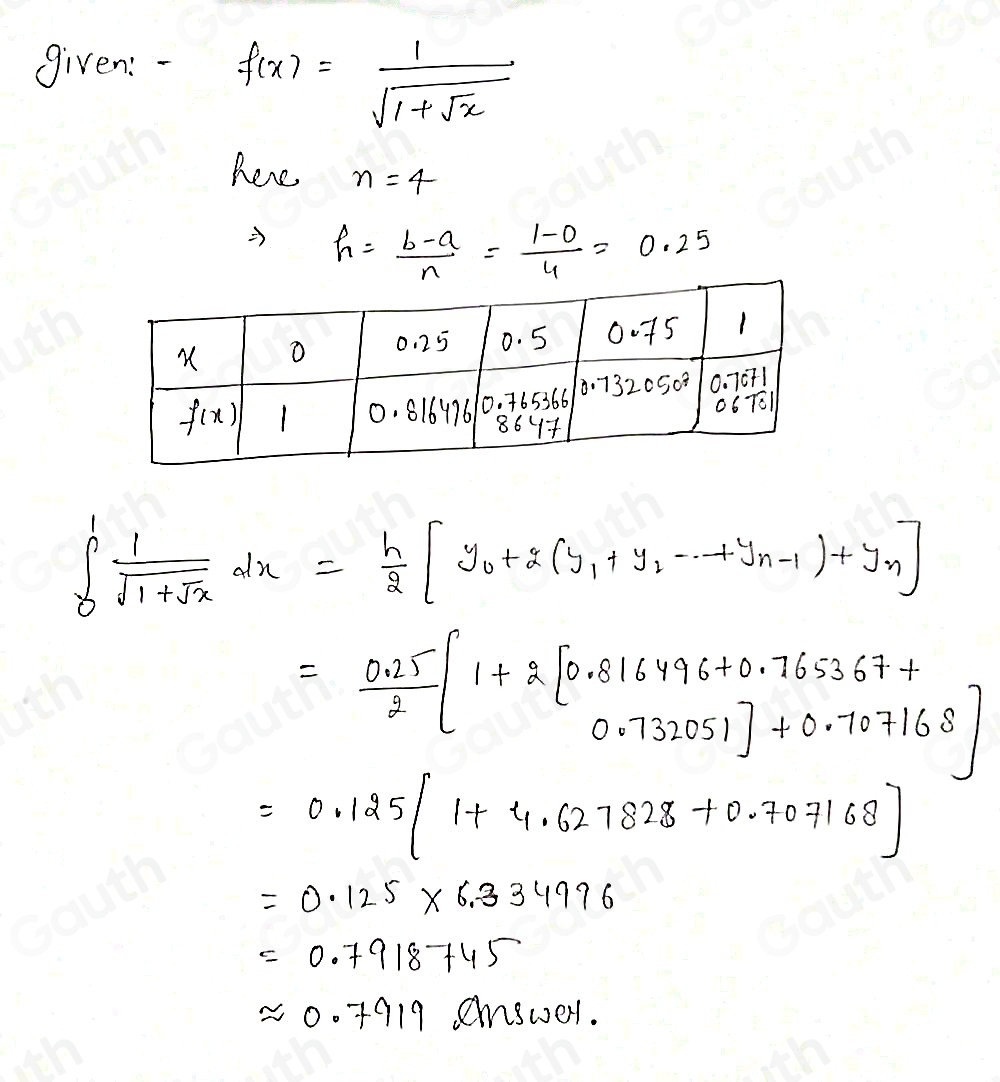 given: - f(x) = 1/√(1+√x)
here n = 4
⇒ h = (b-a)/n = (1-0)/4 = 0.25
x 0 0.25 0.5 0.75 1
f(x) 1 0.816496 0.7653668647 0.7320508 0.707106781
∫₀¹ 1/√(1+√x) dx = h/2 [y₀+2(y₁+y₂---+yₙ₋₁)+yₙ]
= 0.25/2 [1+2[0.816496+0.765367+
0.732051]+0.707168]
= 0.125[1+4.627828+0.707168]
= 0.125 x 6.334996
= 0.7918745
≈ 0.7919 Answer.
Gauth